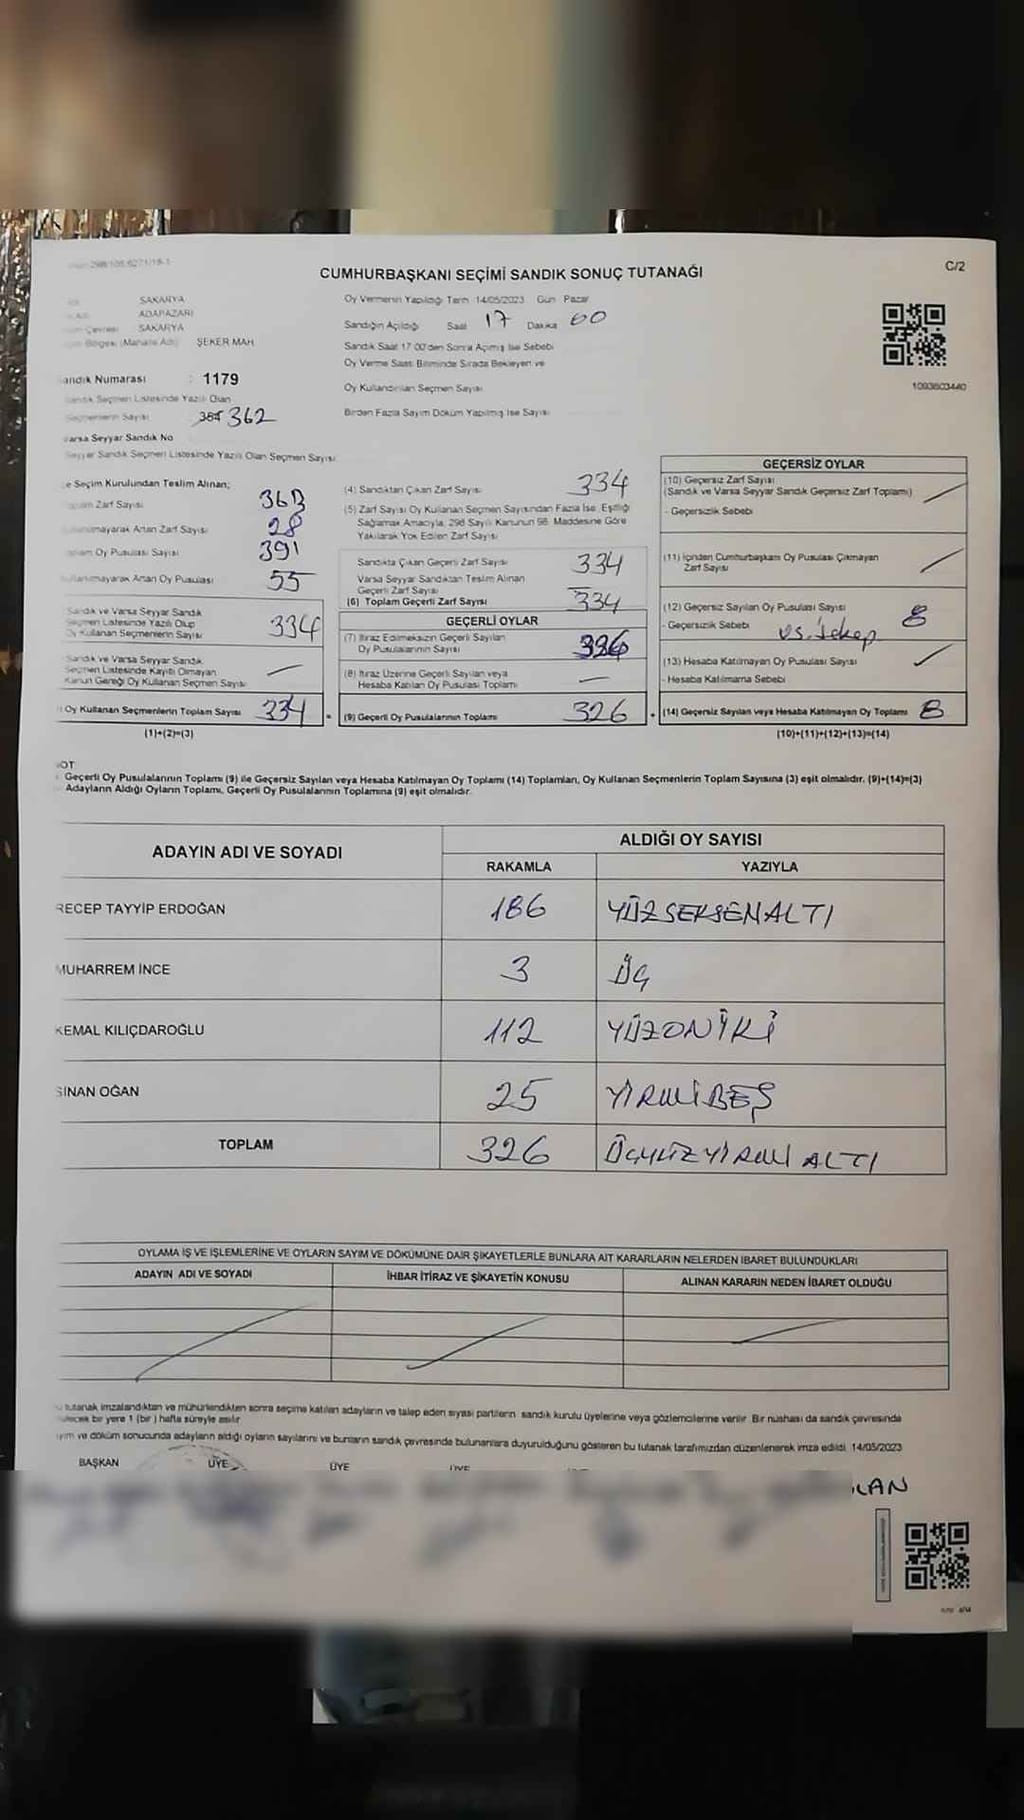 C/2
CUMHURBAŞKANI SEÇİMİ SANDIK SONUÇ TUTANAĞI
SAKARYA
ADAPAZARI
SAKARYA
Bölgesi (Mahalle Adı) ŞEKER MAH
andık Numarası : 1179
Sandık Seçmen Listesinde Yazılı Olan
Seçmenlerin Sayısı 362
Varsa Seyyar Sandık No
Seyyar Sandık Seçmen Listesinde Yazılı Olan Seçmen Sayısı
Oy Vermenin Yapıldığı Tarih 14/05/2023 Gün Pazar
Sandığın Açıldığı Saat 17 Dakika 00
Sandık Saat 17:00'den Sonra Açılmış İse Sebebi
Oy Verme Saati Bitiminde Sırada Bekleyen ve
Oy Kullandırılan Seçmen Sayısı
Birden Fazla Sayım Döküm Yapılmış İse Sayısı
1093603440
e Seçim Kurulundan Teslim Alınan;
Zarf Sayısı 363
Artan Zarf Sayısı 28
Oy Pusulası Sayısı 391
Artan Oy Pusulası 55
Sandık ve Varsa Seyyar Sandık
Seçmen Listesinde Yazılı Olup
Oy Kullanan Seçmenlerin Sayısı 334
Sandık ve Varsa Seyyar Sandık
Seçmen Listesinde Kayıtlı Olmayan
Kanun Gereği Oy Kullanan Seçmen Sayısı —
Oy Kullanan Seçmenlerin Toplam Sayısı 334
(1)+(2)=(3)
(4) Sandıktan Çıkan Zarf Sayısı 334
(5) Zarf Sayısı Oy Kullanan Seçmen Sayısından Fazla İse, Eşitliği
Sağlamak Amacıyla, 298 Sayılı Kanunun 98. Maddesine Göre
Yakılarak Yok Edilen Zarf Sayısı —
Sandıkta Çıkan Geçerli Zarf Sayısı 334
Varsa Seyyar Sandıktan Teslim Alınan
Geçerli Zarf Sayısı —
(6) Toplam Geçerli Zarf Sayısı 334
GEÇERLİ OYLAR
(7) İtiraz Edilmeksizin Geçerli Sayılan
Oy Pusulalarının Sayısı 326
(8) İtiraz Üzerine Geçerli Sayılan veya
Hesaba Katılan Oy Pusulası Toplamı —
(9) Geçerli Oy Pusulalarının Toplamı 326
GEÇERSİZ OYLAR
(10) Geçersiz Zarf Sayısı
(Sandık ve Varsa Seyyar Sandık Geçersiz Zarf Toplamı)
- Geçersizlik Sebebi
(11) İçinden Cumhurbaşkanı Oy Pusulası Çıkmayan
Zarf Sayısı
(12) Geçersiz Sayılan Oy Pusulası Sayısı 8
- Geçersizlik Sebebi
(13) Hesaba Katılmayan Oy Pusulası Sayısı
- Hesaba Katılmama Sebebi
(14) Geçersiz Sayılan veya Hesaba Katılmayan Oy Toplamı 8
(10)+(11)+(12)+(13)=(14)
Geçerli Oy Pusulalarının Toplamı (9) ile Geçersiz Sayılan veya Hesaba Katılmayan Oy Toplamı (14) Toplamları, Oy Kullanan Seçmenlerin Toplam Sayısına (3) eşit olmalıdır. (9)+(14)=(3)
Adayların Aldığı Oyların Toplamı, Geçerli Oy Pusulalarının Toplamına (9) eşit olmalıdır.
ADAYIN ADI VE SOYADI ALDIĞI OY SAYISI
RAKAMLA YAZIYLA
RECEP TAYYİP ERDOĞAN 186 YÜZSEKSENALTI
MUHARREM İNCE 3 ÜÇ
KEMAL KILIÇDAROĞLU 112 YÜZONİKİ
SİNAN OĞAN 25 YİRMİBEŞ
TOPLAM 326 ÜÇYÜZYİRMİ ALTI
OYLAMA İŞ VE İŞLEMLERİNE VE OYLARIN SAYIM VE DÖKÜMÜNE DAİR ŞİKAYETLERLE BUNLARA AİT KARARLARIN NELERDEN İBARET BULUNDUKLARI
ADAYIN ADI VE SOYADI İHBAR İTİRAZ VE ŞİKAYETİN KONUSU ALINAN KARARIN NEDEN İBARET OLDUĞU
tutanak imzalandıktan ve mühürlendikten sonra seçime katılan adayların ve talep eden siyasi partilerin sandık kurulu üyelerine veya gözlemcilerine verilir. Bir nüshası da sandık çevresinde
bir yere 1 (bir) hafta süreyle asılır
ve döküm sonucunda adayların aldığı oyların sayılarını ve bunların sandık çevresinde bulunanlara duyurulduğunu gösteren bu tutanak tarafımızdan düzenlenerek imza edildi. 14/05/2023
BAŞKAN ÜYE ÜYE ÜYE
LAN